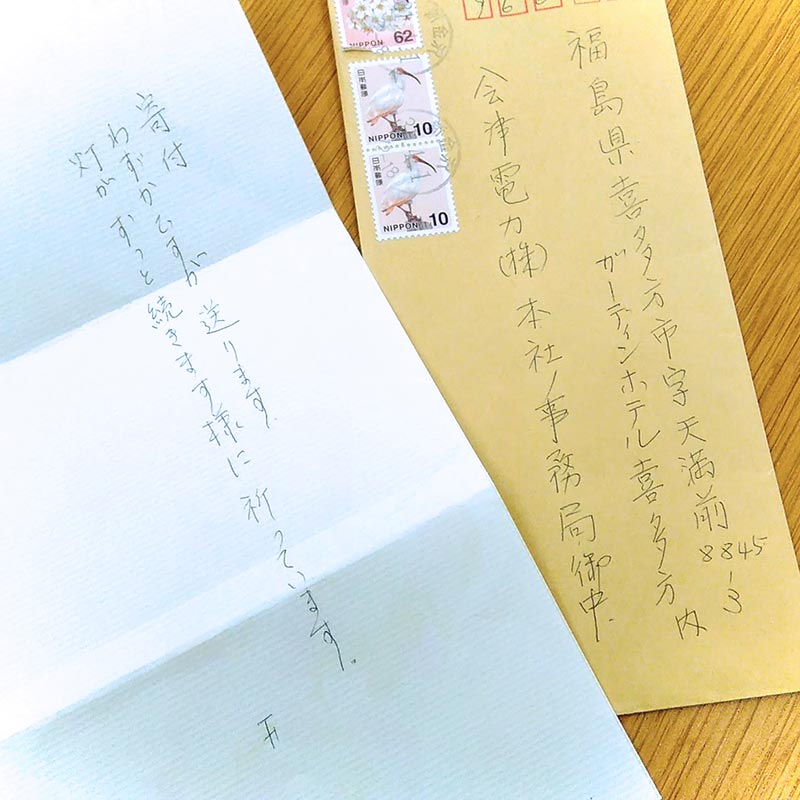 寄付
わずかですが 送ります。
灯が ずっと 続きます様に 祈っています。
62
NIPPON
日本郵便
NIPPON 10
日本郵便
NIPPON 10
96
福島県喜多方市字天満前8845-3
ガーデンホテル喜多方内
会津電力(株)本社/事務局御中.